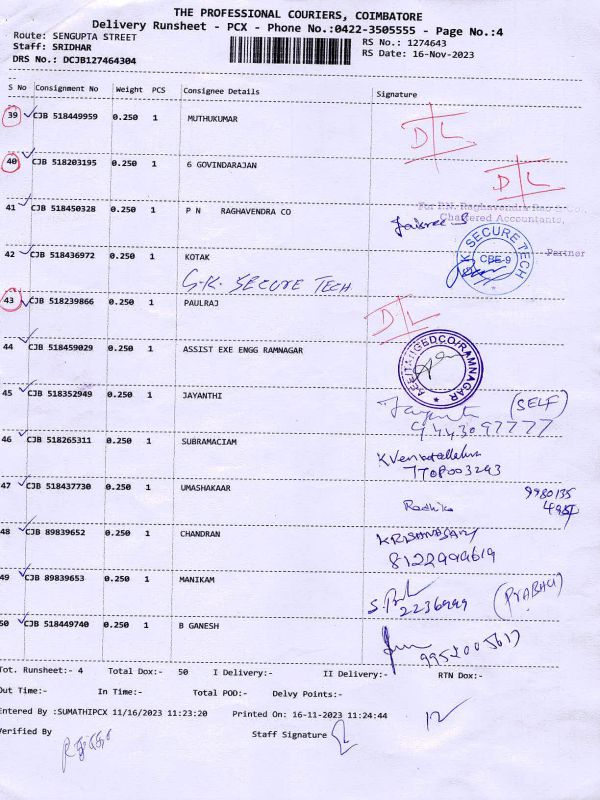 THE PROFESSIONAL COURIERS, COIMBATORE
Delivery Runsheet - PCX - Phone No.:0422-3505555 - Page No.:4
Route: SENGUPTA STREET
RS No.: 1274643
Staff: SRIDHAR
RS Date: 16-Nov-2023
DRS No.: DCJB127464304
S No Consignment No Weight PCS Consignee Details Signature
39 CJB 518449959 0.250 1 MUTHUKUMAR D L
40 CJB 518203195 0.250 1 6 GOVINDARAJAN D L
For P.N. Raghavendra Rao & Co.,
Chartered Accountants,
41 CJB 518450328 0.250 1 P N RAGHAVENDRA CO
Partner
42 CJB 518436972 0.250 1 KOTAK
G.K. SECURE TECH
G.K SECURE TECH
CBE-9
43 CJB 518239866 0.250 1 PAULRAJ D L
44 CJB 518459029 0.250 1 ASSIST EXE ENGG RAMNAGAR
45 CJB 518352949 0.250 1 JAYANTHI (SELF)
9443097777
46 CJB 518265311 0.250 1 SUBRAMACIAM
7708003293
47 CJB 518437730 0.250 1 UMASHAKAAR Radhika 9980135
48 CJB 89839652 0.250 1 CHANDRAN
8122999619
49 CJB 89839653 0.250 1 MANIKAM (PRABHU)
2236999
50 CJB 518449740 0.250 1 B GANESH
Tot. Runsheet:- 4 Total Dox:- 50 I Delivery:- II Delivery:- RTN Dox:-
Out Time:- In Time:- Total POD:- Delvy Points:-
Entered By :SUMATHIPCX 11/16/2023 11:23:20 Printed On: 16-11-2023 11:24:44
Verified By Staff Signature